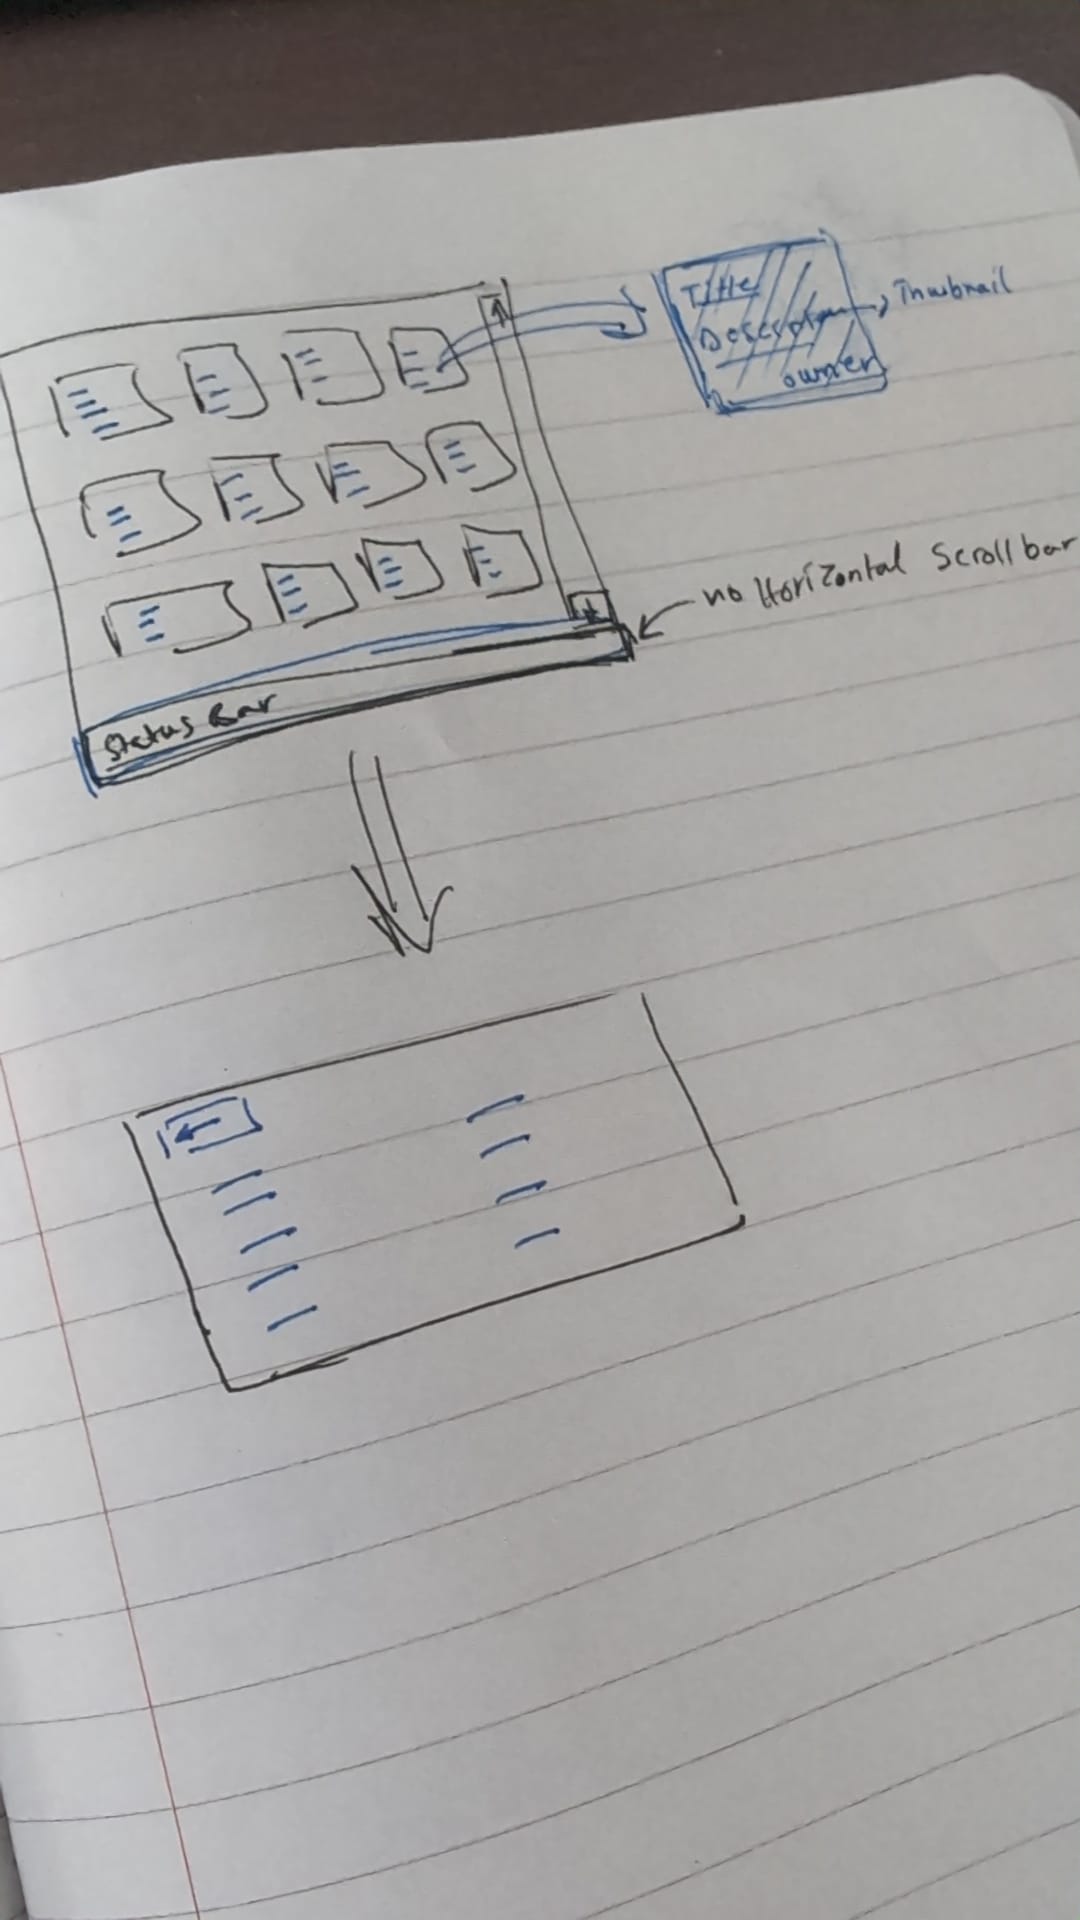 Title
Description
owner
Thubnail
no Horizontal Scroll bar
Status Bar